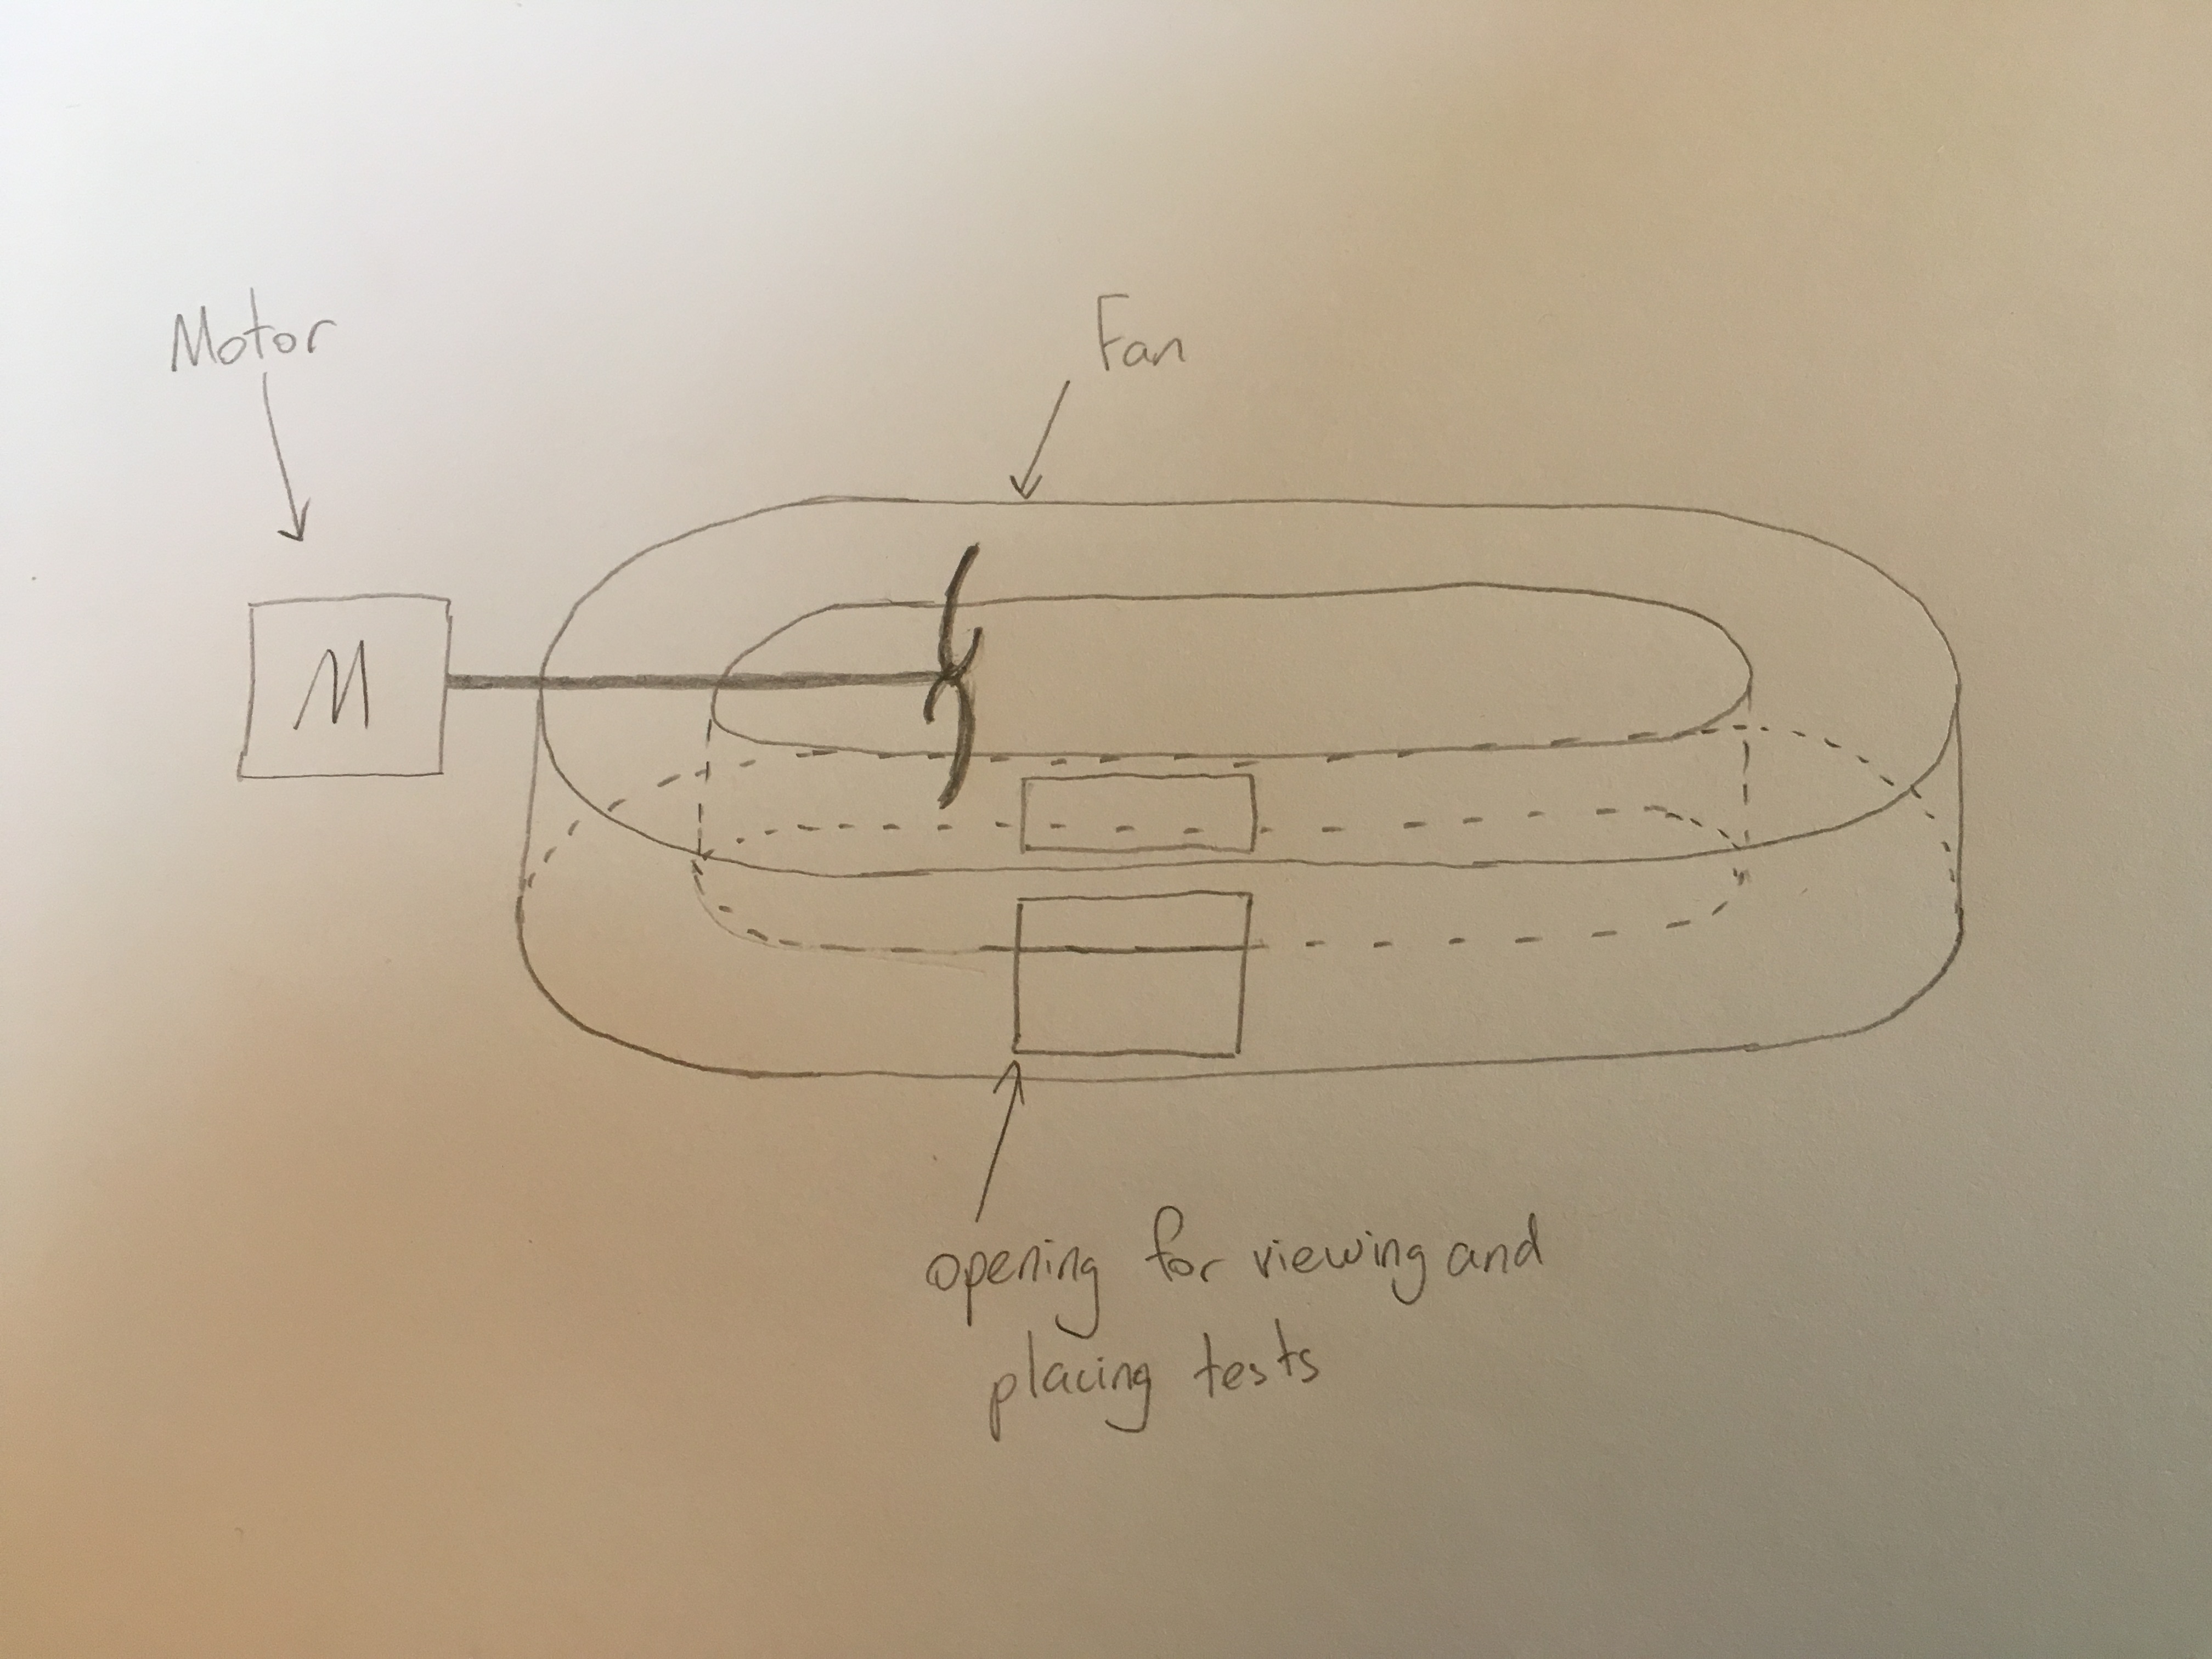 Motor
Fan
M
opening for viewing and
placing tests